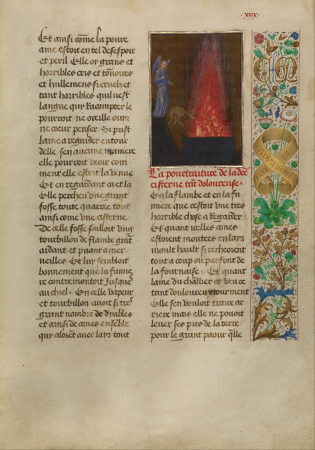 xxix
Et ainsi comme la poure
ame estoit en tel desespoir
et peril Elle oy grans et
horribles cris et tonnoires
et hullemens si treuch et
tant horribles quil nest
langue qui racompter le
pourroit ne oreille ouir
ne coeur penser Si prist
lame a regarder entour
delle sen aucune maniere
elle pourroit veoir com
ment elle estoit la venue
Et en regardant ca et la
Elle percheu une grant
fosse toute quarree tout
ainsi come une cisterne
De celle fosse sailloit ung
tourbillon de flambe grant
ardant et puant a mer
veilles Et lui sembloit
bonnement que la fumee
contremontoit jusques
au chiel En celle vapeur
et tourbillon avoit si tres
grant nombre de dyables
et ainsi de ames ensemble
qui aloient avec la tout
La pourtraiture de la
cisterne tant doloureuse
En la flambe et en la fu
miere que estoit une tres
horrible chose a regarder
Et quant icelles ames
estoient montees en lair
moult hault si recheoient
tout a coup ou parfont de
la fournaise Et quant
lame du chevallier et
tant douloureux tourment
Elle sen vouloit traire ar
riere mais elle ne pooit
lever ses pies de la terre
pour le grant paour quelle